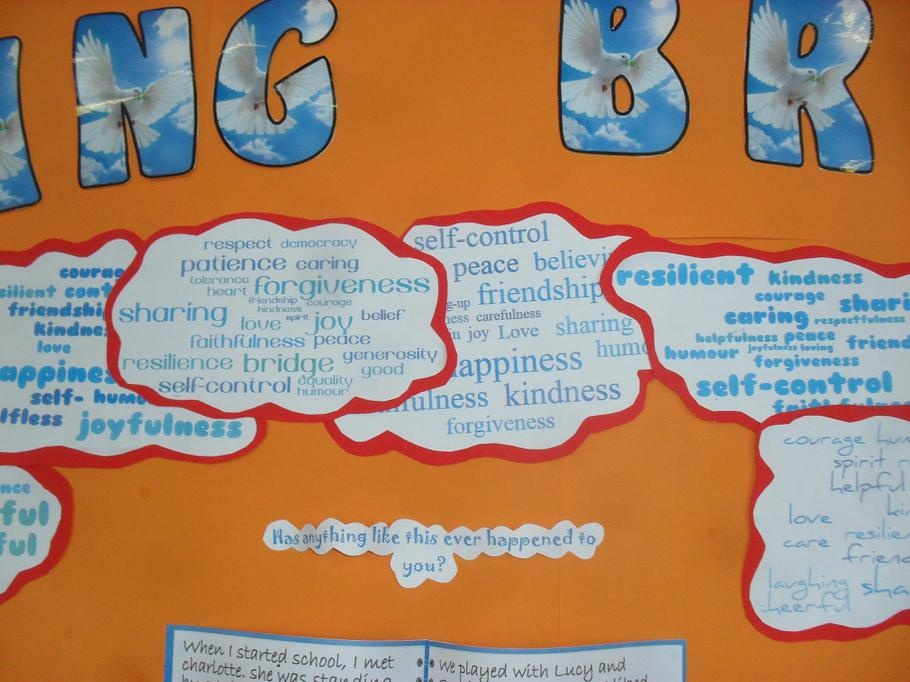 ING BR
courage
resilient
friendship
kindness
love
happiness
self-
selfless joyfulness
respect democracy
patience caring
tolerance
heart forgiveness
friendship courage
kindness
sharing spirit joy belief
love
faithfulness peace
resilience bridge generosity
good
self-control equality
humour
self-control
peace believi
friendship
g-up carefulness
joy Love sharing
happiness humo
kindness
forgiveness
resilient kindness
courage
caring shari
respectfulness
helpfulness peace friend
humour joyfulness loving
forgiveness
self-control
faithfulness
courage hum
spirit r
helpful
love ki
care resilie
friend
laughing sha
cheerful
nce
ful
ful
Has anything like this ever happened to
you?
When I started school, I met
charlotte. she was standing
We played with Lucy and